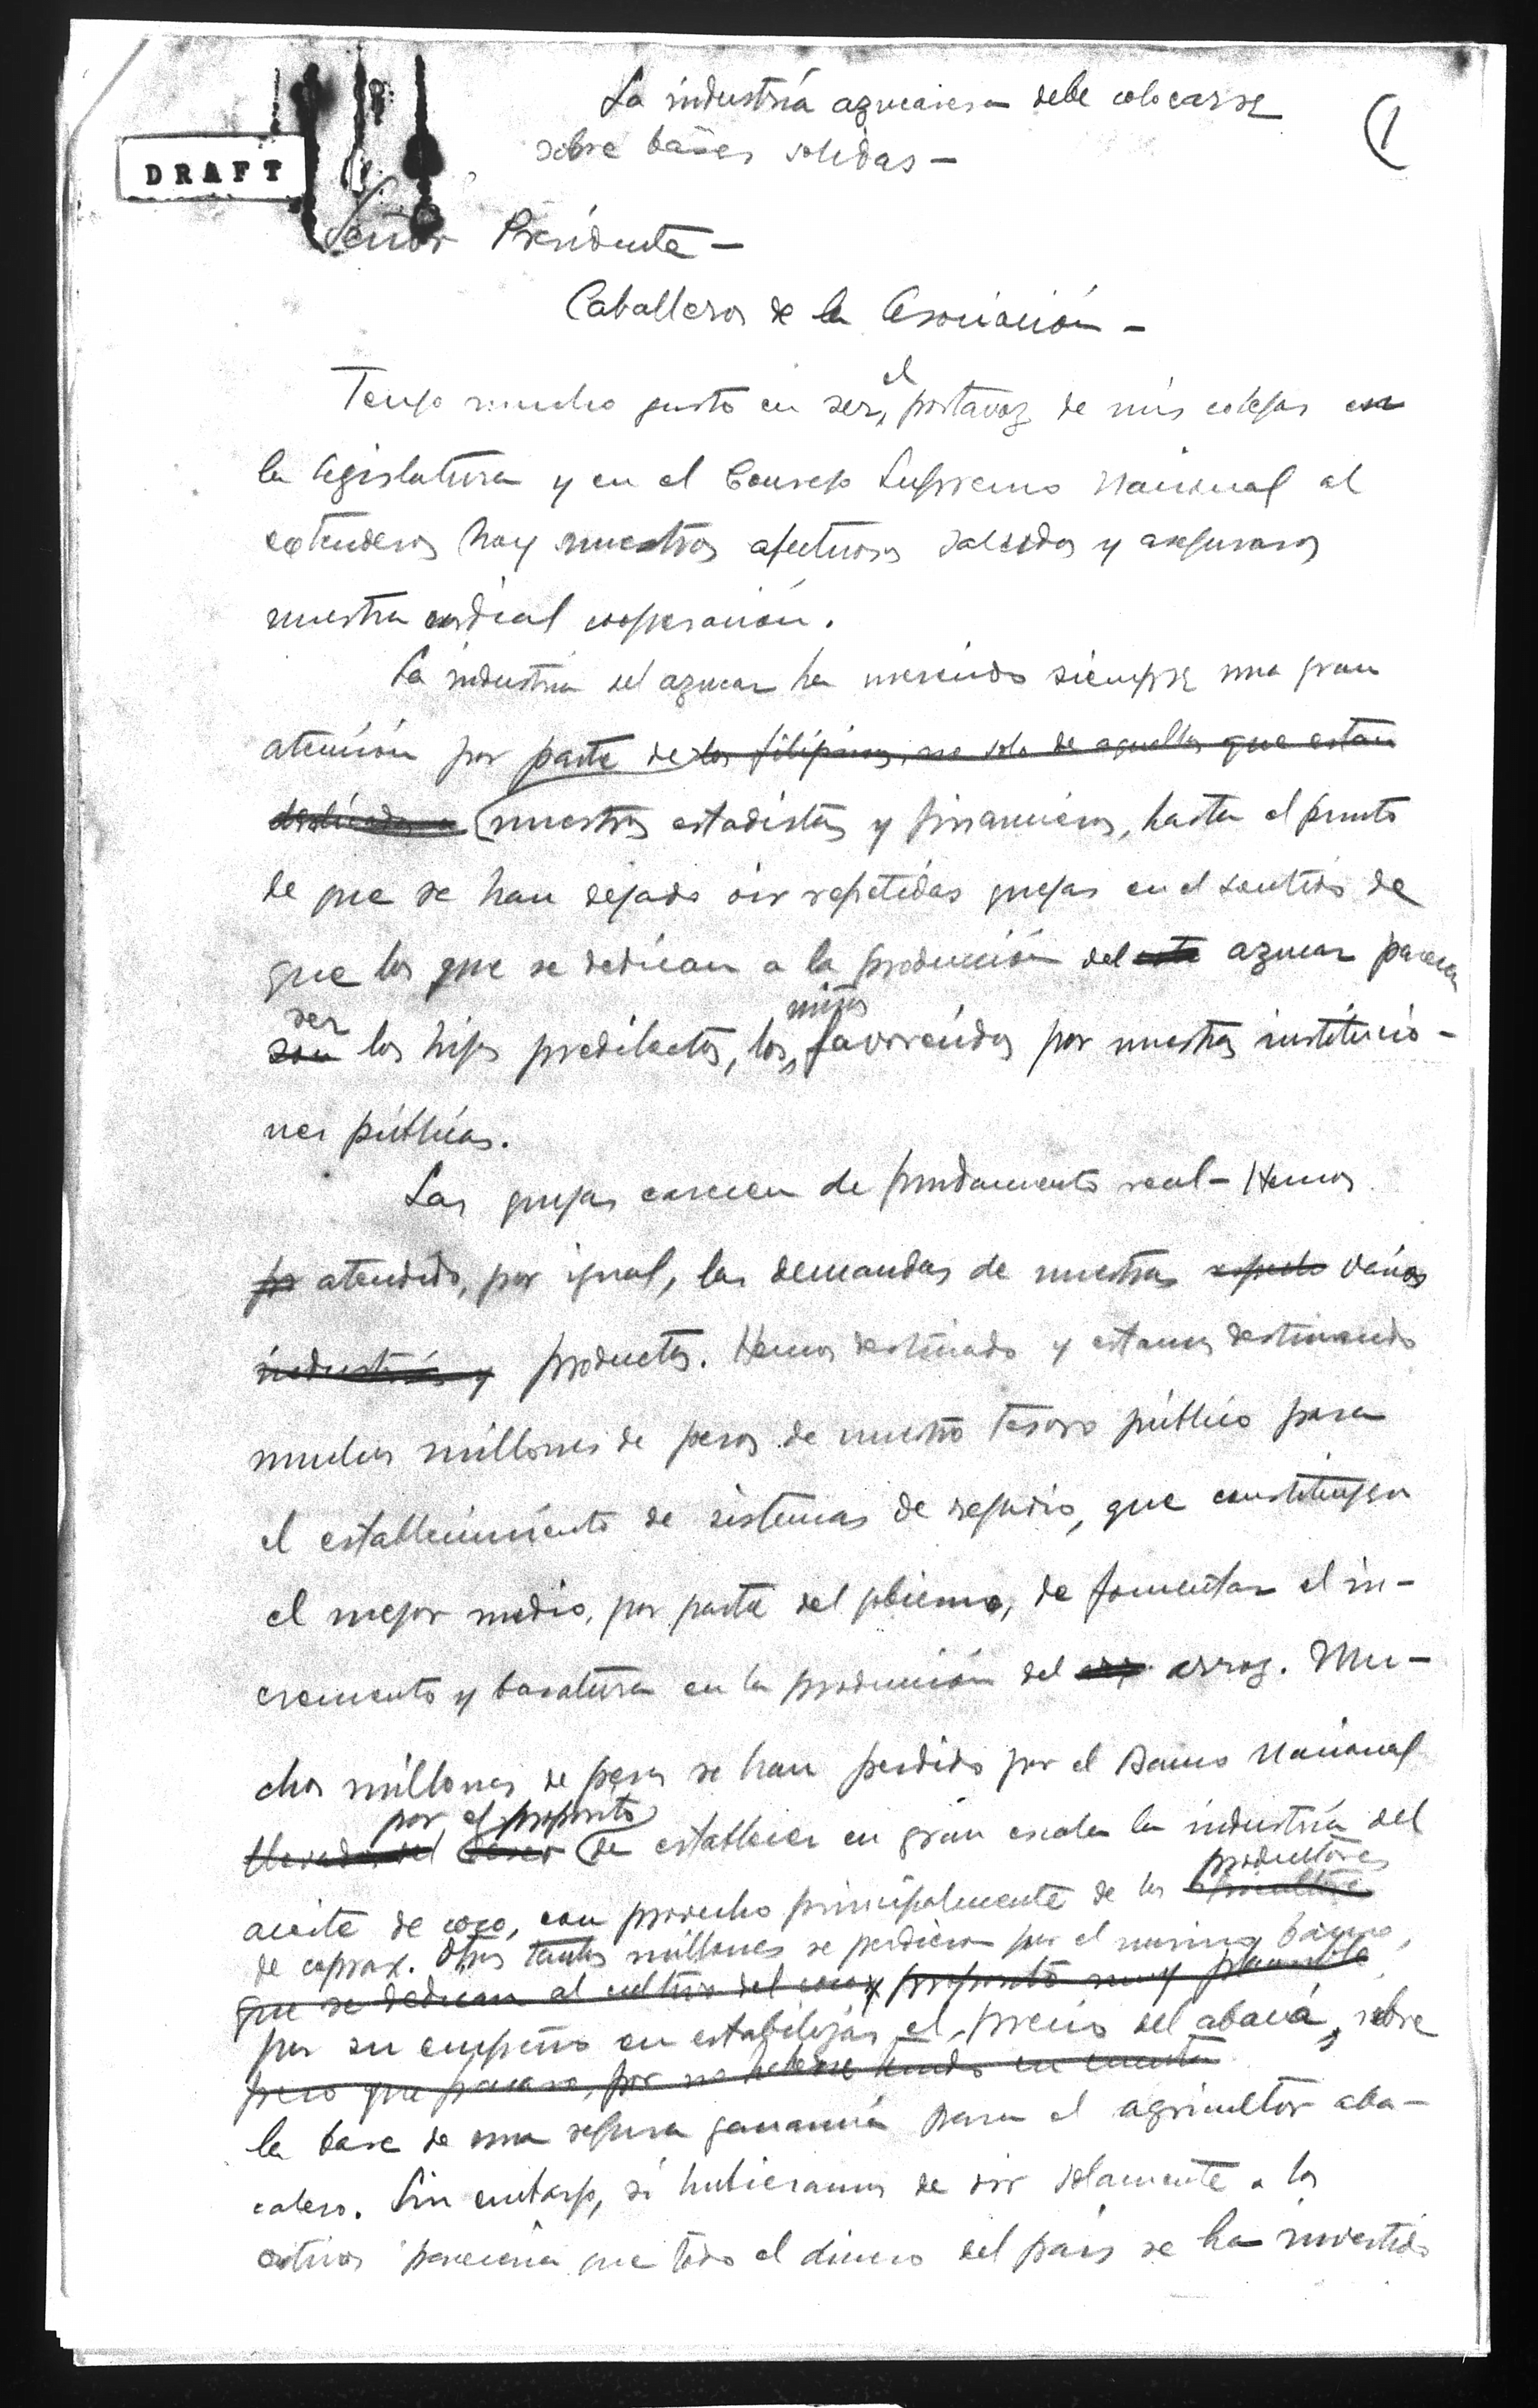 La industria azucarera debe colocarse
(1
sobre bases solidas —
DRAFT
Señor Presidente —
Caballeros de la Asociación —
Tengo mucho gusto en ser el portavoz de mis colegas en
la legislatura y en el Consejo Supremo Nacional al
extenderos hoy nuestros afectuosos saludos y aseguraros
nuestra cordial cooperación.
La industria del azucar ha merecido siempre una gran
atención por parte de los filipinos, no solo de aquellos que estan
dedicados a nuestros estadistas y financieros, hasta el punto
de que se han dejado oir repetidas quejas en el sentido de
que los que se dedican a la producción del este azucar parecen
ser
son los hijos predilectos, los mas favorecidos por nuestras institucio-
nes públicas.
Las quejas carecen de fundamento real — Hemos
atendido, por igual, las demandas de nuestros varios
industrias y productos. Hemos destinado y estamos destinando
muchos millones de pesos de nuestro tesoro público para
el establecimiento de sistemas de regadio, que constituyen
el mejor medio, por parte del gobierno, de fomentar el in-
cremento y baratura en la producción del arroz. Mu-
chos millones de pesos se han perdido por el Banco Nacional
por el proposito
llevado del deseo de establecer en gran escala la industria del
productores
aceite de coco, con provecho principalmente de los
de coprax. Otros tantos millones se perdieron por el mismo banco,
que se dedican al cultivo del coco y proposito muy plausible
por su empeño en estabilizar el precio del abacá, sobre
pero que fracaso, por no haberse tenido en cuenta
la base de una segura ganancia para el agricultor aba-
calero. Sin embargo, si hubieramos de oir solamente a los
criticos pareceria que todo el dinero del pais se ha invertido